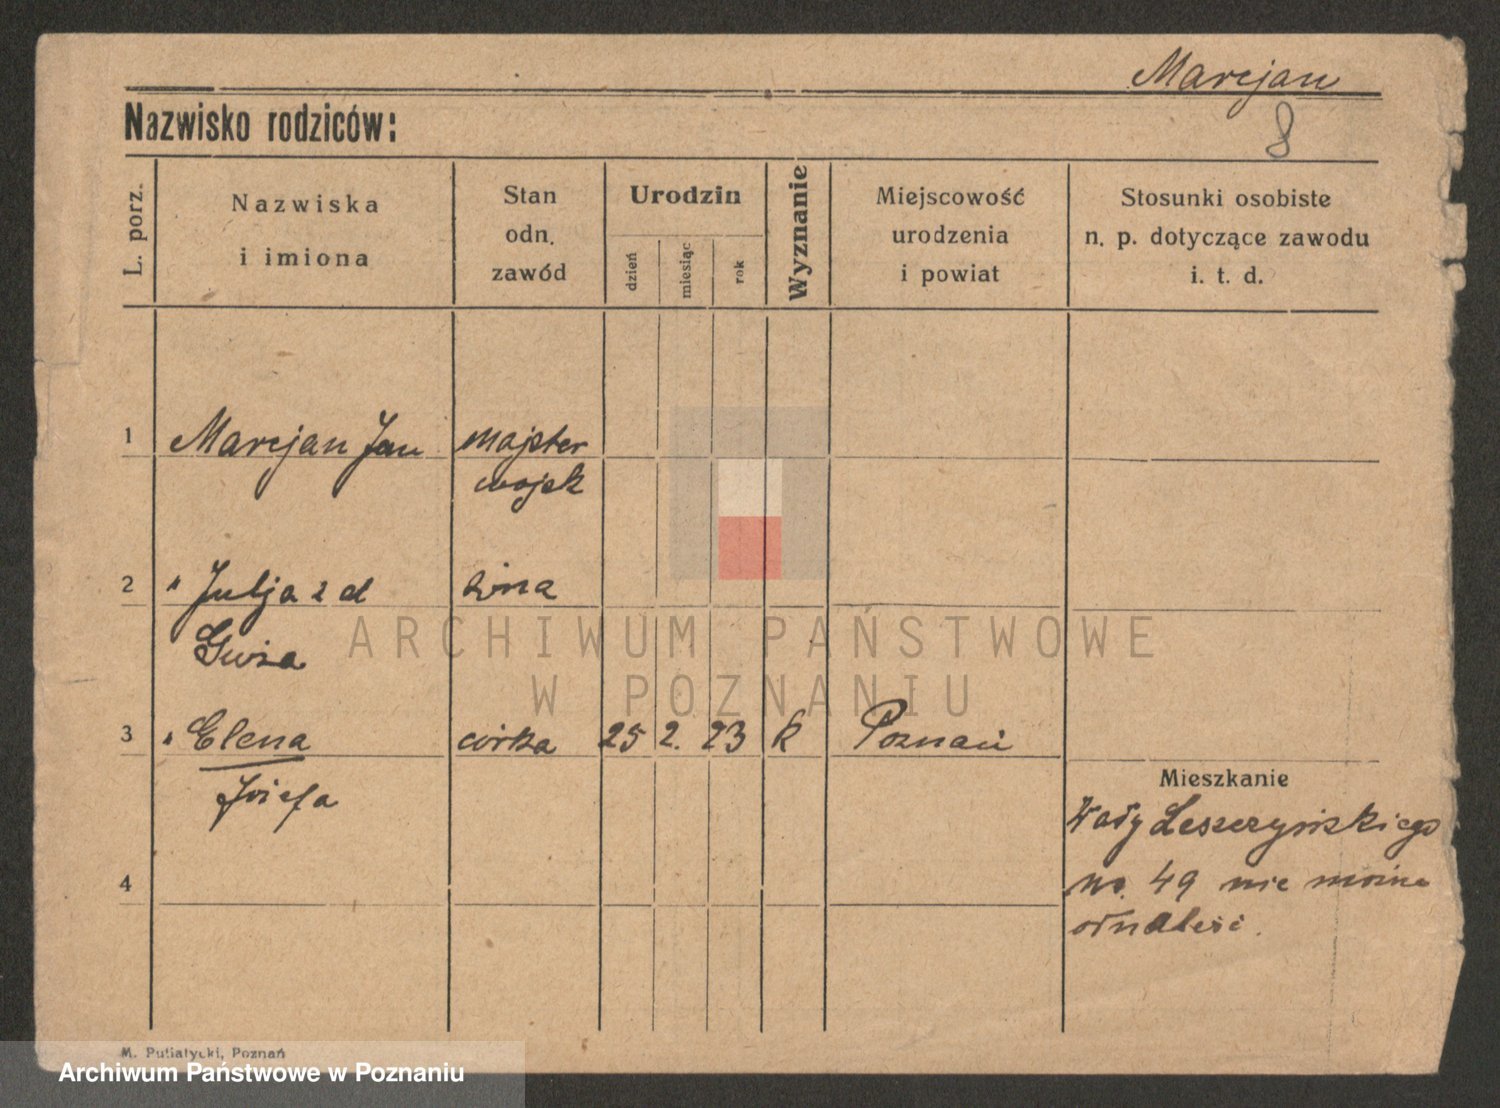 Marcjan
Nazwisko rodziców:
8
L. porz.
Nazwiska
i imiona
Stan
odn.
zawód
Urodzin
dzień
miesiąc
rok
Wyznanie
Miejscowość
urodzenia
i powiat
Stosunki osobiste
n. p. dotyczące zawodu
i. t. d.
1 Marcjan Jan majster
wojsk
2 " Julja z d żona
Gwza
ARCHIWUM PAŃSTWOWE
W POZNANIU
3 " Elena córka 25 2. 23 k Poznań
Józefa
Mieszkanie
Wały Leszczyńskiego
no. 49 nie można
odnaleść.
4
M. Putiatycki, Poznań
Archiwum Państwowe w Poznaniu